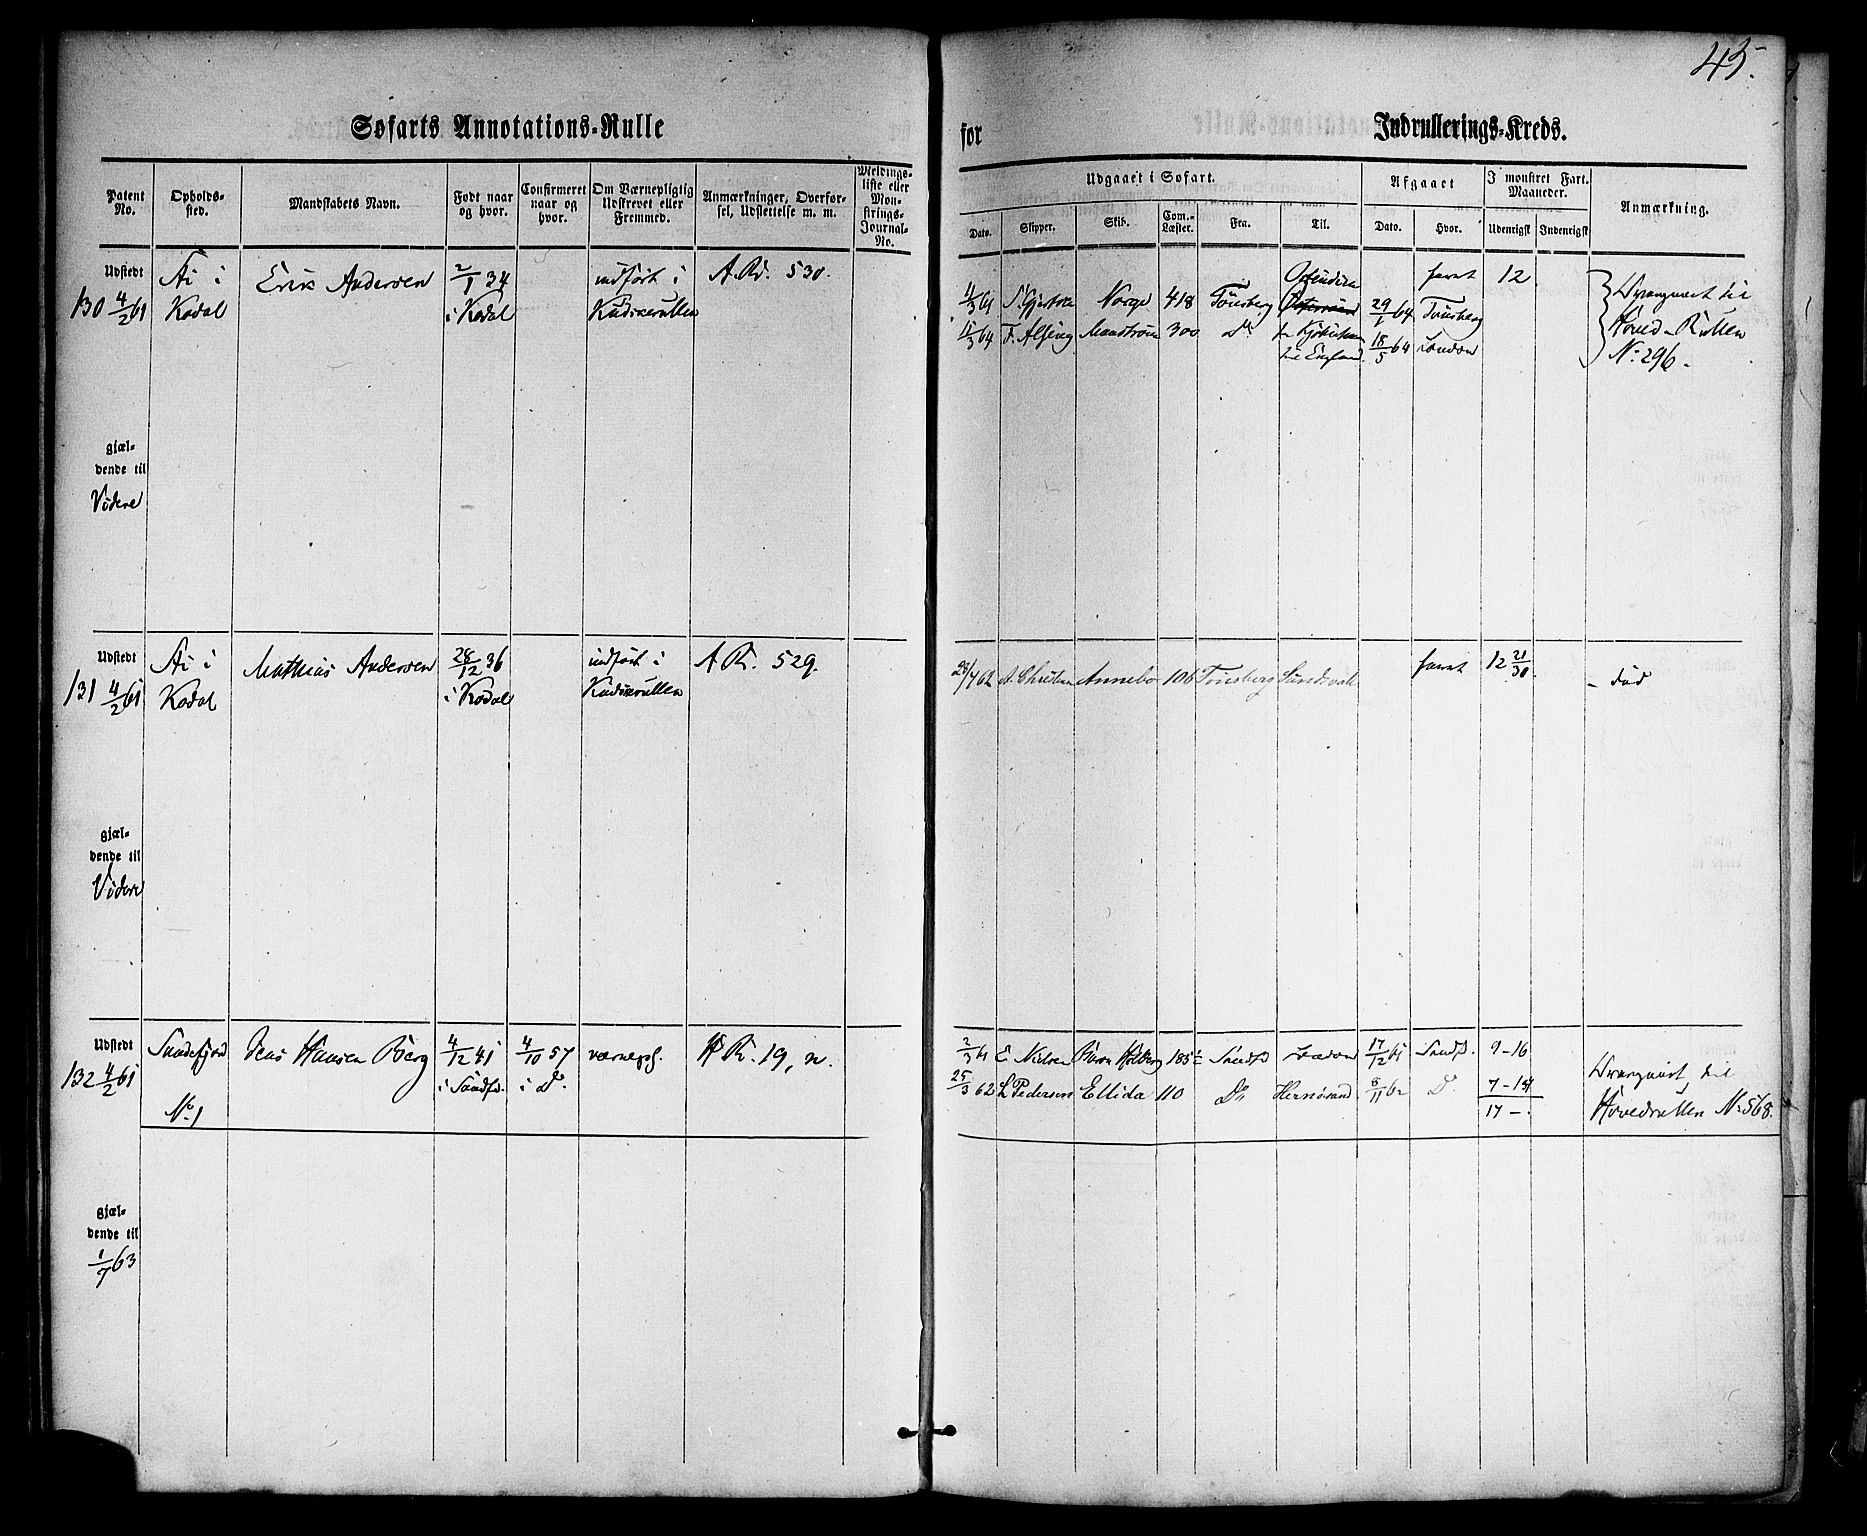 45.
Søfarts Annotations-Rulle
for Indrullerings-Kreds.
Patent No. Opholds-sted. Mandskabets Navn. Født naar og hvor. Confirmeret naar og hvor. Om Værnepligtig Udskrevet eller Fremmed. Anmærkninger, Overførsel, Udslettelse m. m. Meldings-liste eller Mønstrings-Journal-No.
Udgaaet i Søfart. Afgaaet I mønstret Fart. Maaneder. Anmærkning.
Dato. Skipper. Skib. Com.-Læster. Fra. Til. Dato. Hvor. Udenrigsk Indenrigsk
Udstedt
130 4/2 61
Ai i
Kodal
Erik Andersen
2/1 34
i Kodal
indført i
Kudskerullen
A. R. 530.
11/3 61 Norge 418 Tönsberg 29/7 64 Tönsberg
faret 12
11/3 64 300 Do til England 18/5 64 London
til
Hoved-Rullen
No. 296.
gjæl-
dende til
Videre
Udstedt
131 4/2 61
Ai i
Kodal
Mathias Andersen
28/12 36
i Kodal
indført i
Kudskerullen
A R. 529.
28/4 62 A. Christian Annebo 106 Tönsberg Sundsvall
faret 12 21/30
- död
gjæl-
dende til
Videre
Udstedt
132 4/2 61
Sandefjord
No. 1
Jens Hansen Berg
4/12 41
i Sandfd.
4/10 57
i Do.
værnepl.
H R. 19, n.
2/3 61 E Nielsen Baron Holberg 185½ Sandfd London 17/12 61 Sandfd. 9-16
25/3 62 L Pedersen Ellida 110 Do Hernösand 8/11 62 D. 7-14
17 -.
til
Hovedrullen No. 568.
gjæl-
dende til
1/7 63